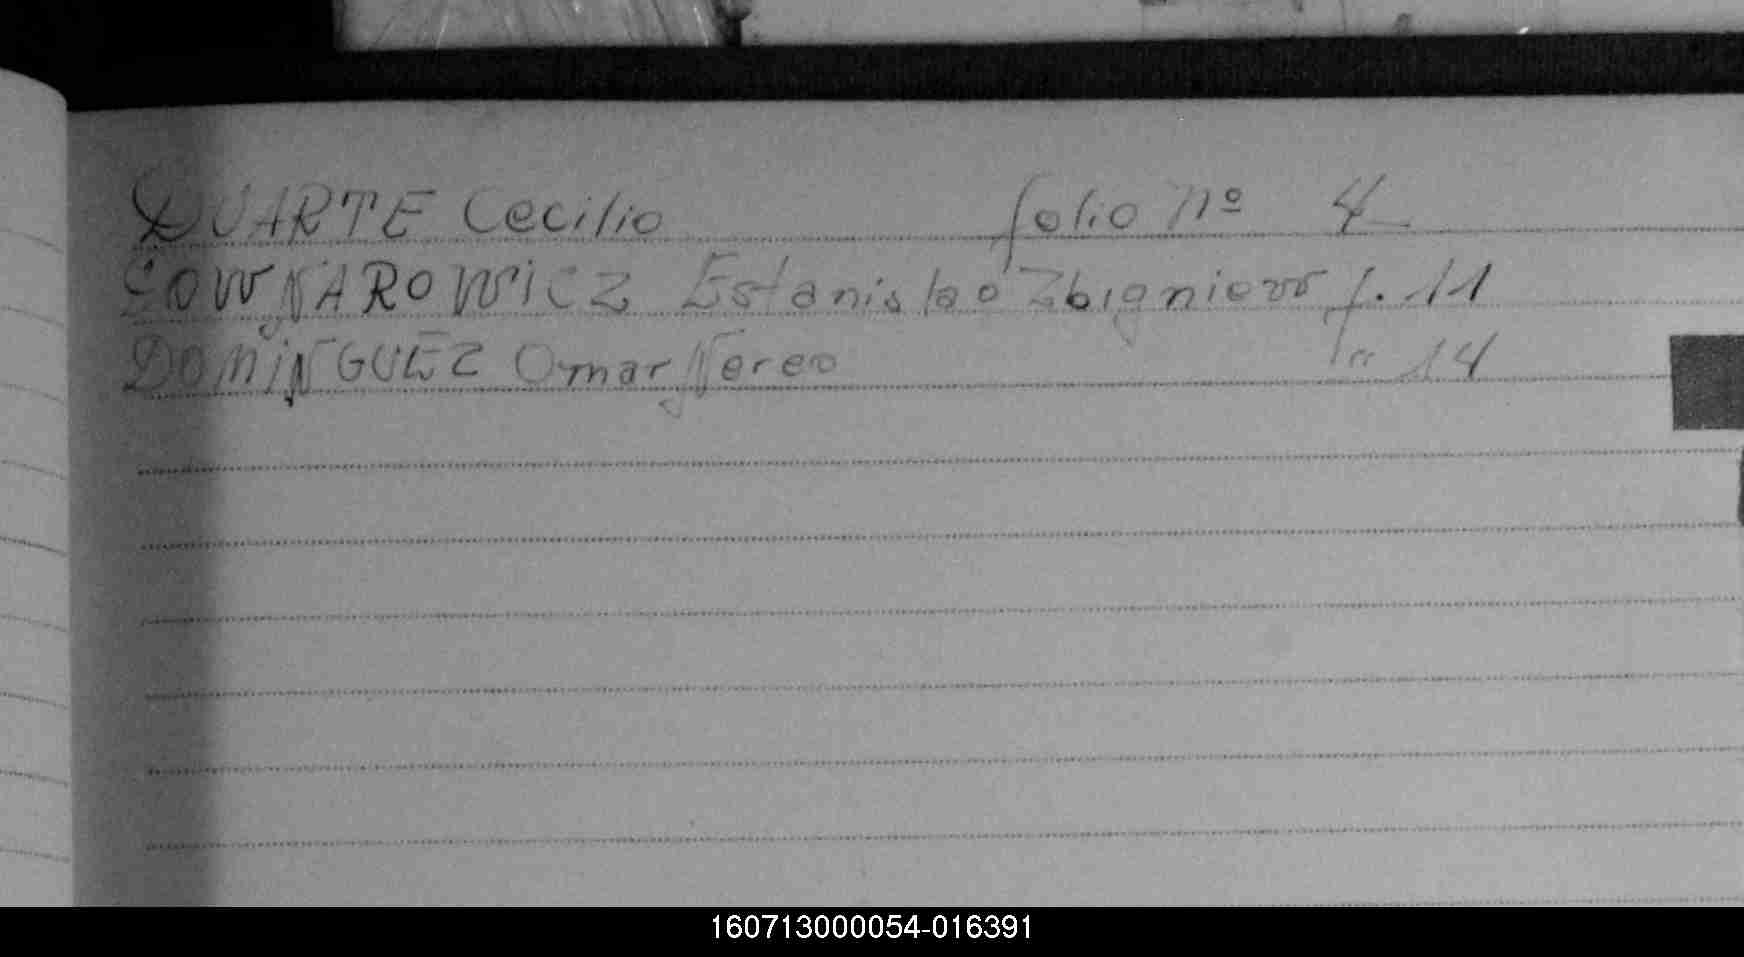 DUARTE Cecilio folio Nº 4
DOWNAROWICZ Estanislao Zbigniew f. 11
DOMINGUEZ Omar Nereo f. 14
160713000054-016391